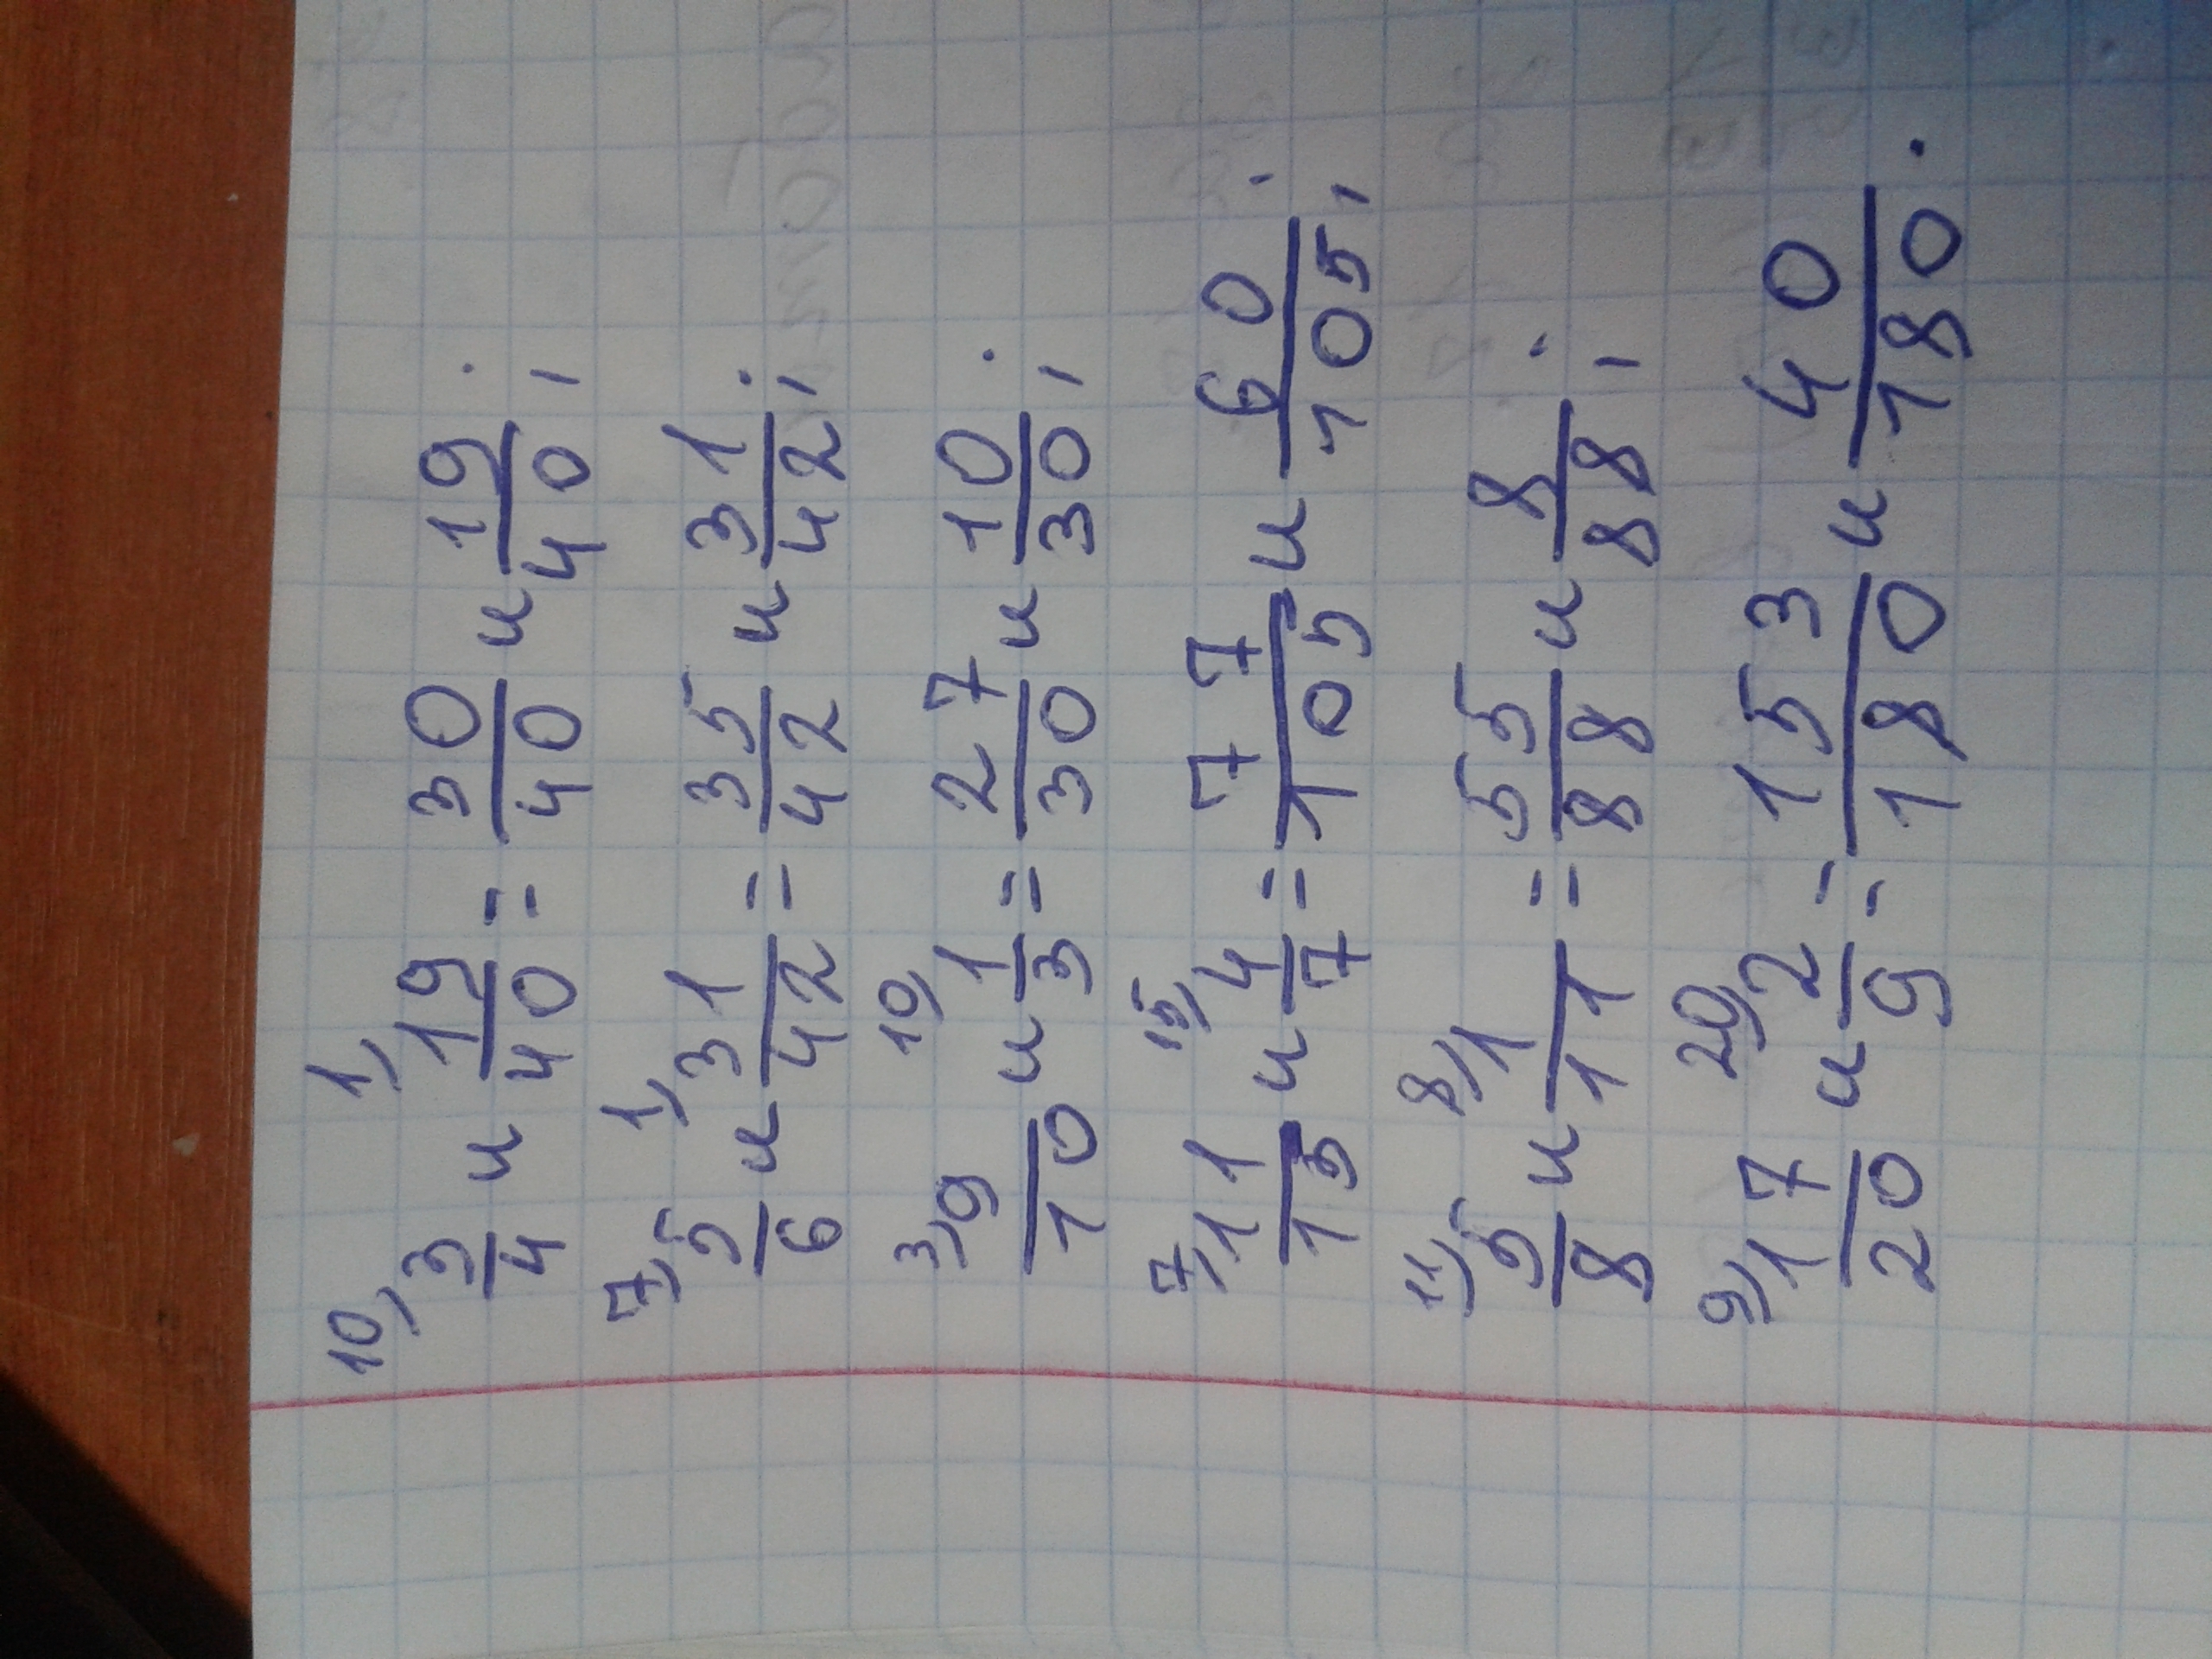 10) 3/4 и 1) 19/40 = 30/40 и 19/40;
7) 5/6 и 1) 31/42 = 35/42 и 31/42;
3) 9/10 и 10) 1/3 = 27/30 и 10/30;
7) 11/15 и 15) 4/7 = 77/105 и 60/105;
11) 5/8 и 8) 1/11 = 55/88 и 8/88;
9) 17/20 и 20) 2/9 = 153/180 и 40/180.